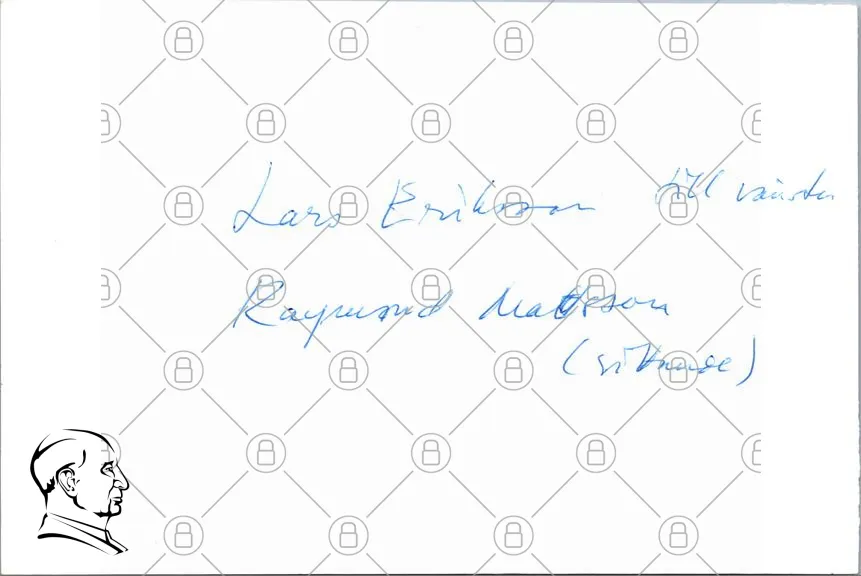 Lars Eriksson till vänster
Raymond Mattsson
(sittande)